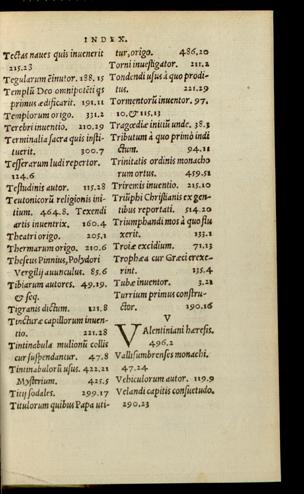 INDEX.
Tectas naues quis inuenerit
215.23
Tegularum & imitor. 188.15
Templū Deo omnipotēti qs
primus ædificarit. 191.11
Templorum origo. 331.2
Terebri inuentio. 210.29
Terminalia sacra quis insti-
tuerit. 300.7
Tesserarum ludi repertor.
124.6
Testudinis autor. 115.28
Teutonicorū religionis ini-
tium. 464.8. Texendi
artis inuentrix. 160.4
Theatri origo. 205.1
Thermarum origo. 210.6
Theseus Pinnius, Polydori
Vergilij auunculus. 85.6
Tibiarum autores. 49.19.
& seq.
Tigranis dictum. 121.8
Tincturæ capillorum inuen-
tio. 221.28
Tintinabula mulionū collis
cur suspendantur. 47.8
Tintinabulorū usus. 422.21
Mysterium. 425.5
Titij sodales. 299.17
Titulorum quibus Papa uti-
tur, origo. 486.20
Torni inuestigator. 211.2
Tondendi usus à quo prodi-
tus. 221.29
Tormentorū inuentor. 97.
10. & 115.13
Tragœdiæ initiū unde. 38.3
Tributum à quo primò indi
ctum. 94.11
Trinitatis ordinis monacho
rum ortus. 459.51
Triremis inuentio. 215.10
Triūphi Christianis ex gen-
tibus reportati. 514.20
Triumphandi mos à quo flu
xerit. 133.1
Troiæ excidium. 71.13
Trophæa cur Græci erexe-
rint. 135.4
Tubæ inuentor. 3.21
Turrium primus constru-
ctor. 190.16
V
VAlentiniani hæresis.
496.2
Vallisumbrenses monachi.
47.24
Vehiculorum autor. 119.9
Velandi capitis consuetudo.
290.23